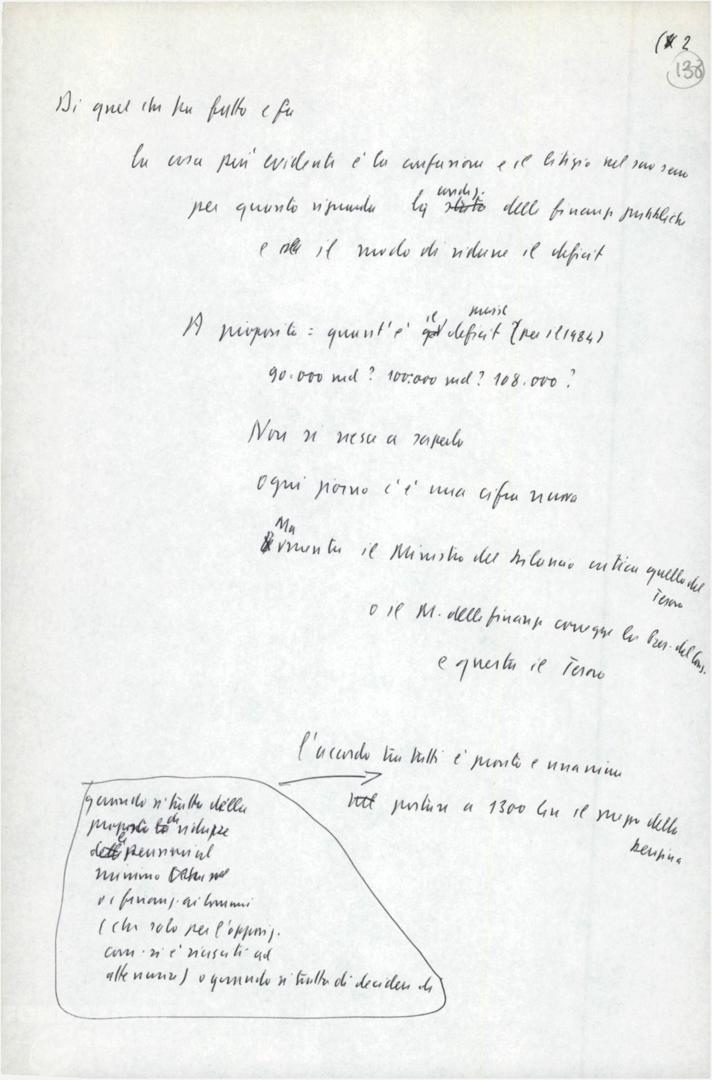 (* 2
138
Di quel che ha fatto e fa
la cosa più evidente è la confusione e il litigio nel suo seno
per quanto riguarda la condiz. delle finanze pubbliche
e il modo di ridurre il deficit
A proposito = quant'è il deficit (per il 1984)
90.000 md? 100.000 md? 108.000?
Non si riesce a saperlo
ogni giorno c'è una cifra nuova
Ma mentre il Ministro del bilancio critica quello del
Tesoro
o il M. delle finanze corregge la Pres. del Cons.
e questa il Tesoro
l'accordo tra tutti è pronto e unanime
portare a 1300 lire il prezzo della
benzina
quando si tratta della
proposta di ridurre
le pensioni al
minimo
o i finanz. ai comuni
(che solo per l'oppos.
com. si è riusciti ad
attenuare) o quando si tratta di decidere di